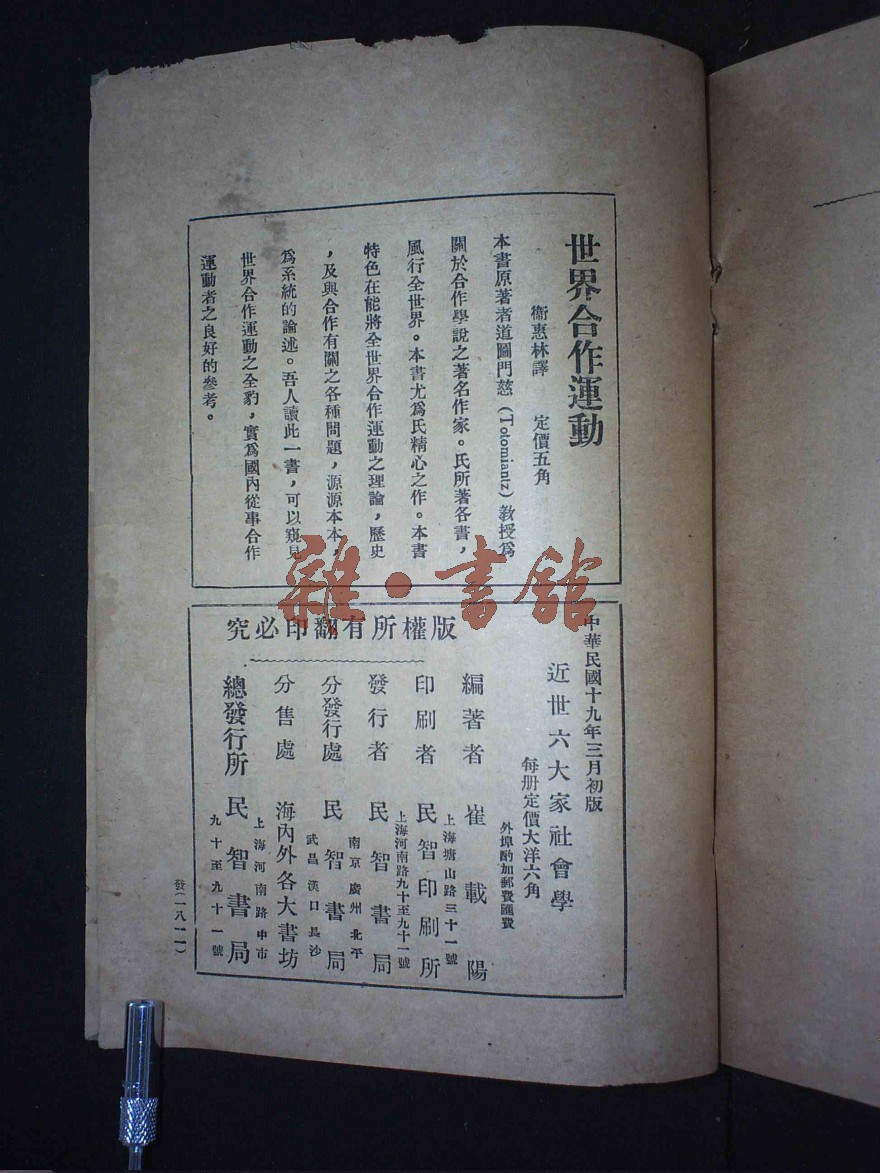 世界合作運動
衞惠林譯　定價五角
本書原著者道圖門慈（Totomiantz）教授爲
關於合作學說之著名作家。氏所著各書，
風行全世界。本書尤爲氏精心之作。本書
特色在能將全世界合作運動之理論，歷史
，及與合作有關之各種問題，源源本本，
爲系統的論述。吾人讀此一書，可以窺見
世界合作運動之全豹，實爲國內從事合作
運動者之良好的參考。
雜·書館
版權所有翻印必究
中華民國十九年三月初版
近世六大家社會學
每册定價大洋六角
外埠酌加郵費匯費
編著者　崔載陽
上海塘山路三十一號
印刷者　民智印刷所
上海河南路九十至九十一號
發行者　民智書局
南京廣州北平
分發行處　民智書局
武昌漢口長沙
分售處　海內外各大書坊
上海河南路中市
總發行所　民智書局
九十至九十一號
發（一八一一）